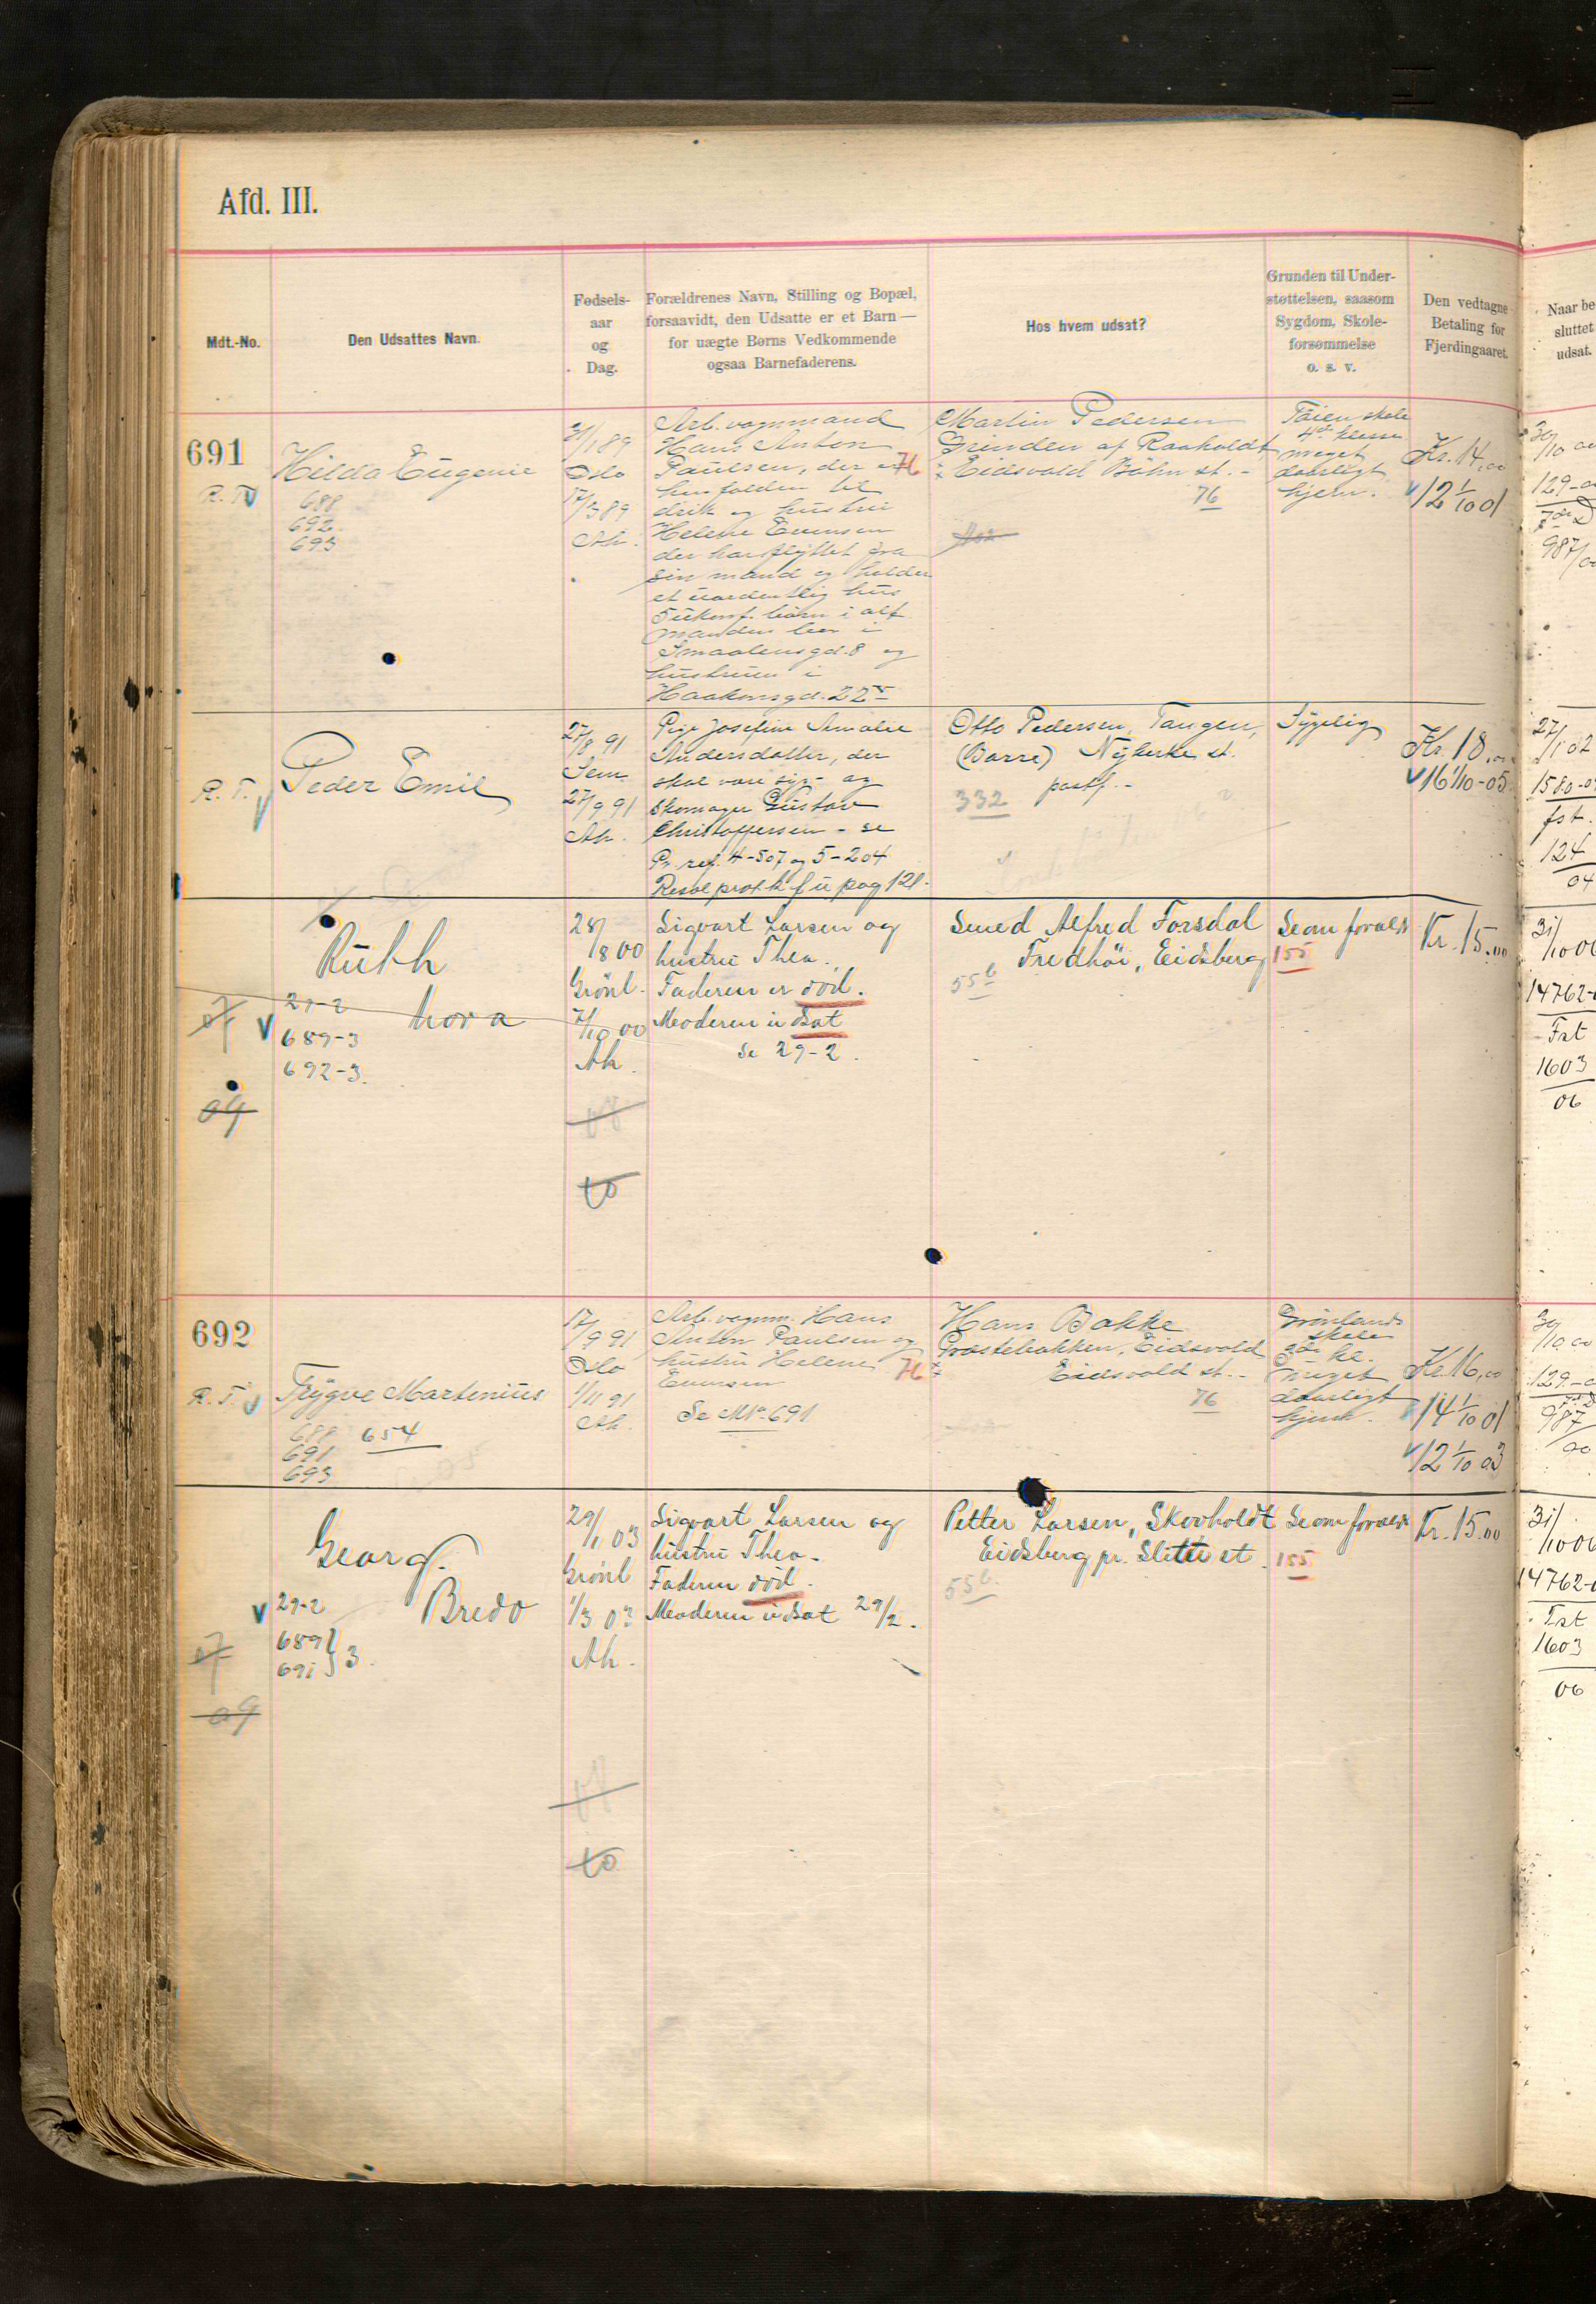 Afd. III.
Mdt.-No.
Den Udsattes Navn.
Fødsels-
aar
og
Dag.
Forældrenes Navn, Stilling og Bopæl,
forsaavidt, den Udsatte er et Barn —
for uægte Børns Vedkommende
ogsaa Barnefaderens.
Hos hvem udsat?
Grunden til Under-
støttelsen, saasom
Sygdom, Skole-
forsømmelse
o. s. v.
Den vedtagne
Betaling for
Fjerdingaaret.
Naar be
sluttet
udsat.
691
R. T.
Hilda Eugenie
688
692
693
31/1 89
Oslo
17/3 89
Ah.
Arb. vognmand
Hans Anton
Paulsen, der er
henfalden til
drik og hustru
Helene Evensen
der har flyttet fra
sin mand og holder
et uordentlig hus
5 ukonf. børn i alt
manden bor i
Smaalensgd. 8 og
hustruen i
Haakonsgd. 22
76
Martin Pedersen
Grinden af Raaholdt
Eidsvold Bøhn st. -
76
Tøien skole
4de klasse
meget
daarligt
hjem.
Kr. 14,00
12 1/10 01
30/10 00
129-0
987/00
R. T.
Peder Emil
27/8 91
Jem.
27/9 91
Ah.
Pige Josefine Amalie
Andersdatter, der
skal være syg - og
Skomager Gustav
Christoffersen - se
Pr. ref. 4-507 og 5-204
Resol prot. h f u pag 121.
Otto Pedersen, Tangen,
(Borre) Nykirke st.
postf. -
332
Sygelig
Kr. 18,00
16 1/10-05
27/1 02
1580-0
fst.
124
04
Ruth
Nora
07
29-2
689-3
692-3.
09
28/8 00
Grønl.
7/10 00
Ah.
10
Sigvart Larsen og
hustru Thea.
Faderen er død.
Moderen udsat
Se 29-2.
Smed Alfred Forsdal
Fredhøi, Eidsberg
55b
Se om forældr
155
Kr. 15.00
31/10 06
14762-
Fst
1603
06
692
R. T.
Trygve Martenius
688 654
691
693
17/9 91
Oslo
1/11 91
Ah.
Arb. vognm. Hans
Anton Paulsen og
hustru Helene
Evensen
Se No. 691
76
Hans Bakke
Præstebakken, Eidsvold
Eidsvold st. -
76
Grønlands
skole
2de kl.
meget
daarligt
hjem.
Kr. 16,00
14 1/10 01
12 1/10 03
30/10 00
129-0
987
00
Georg.
Bredo
29-2
689
691 } 3.
07
09
29/1 03
Grønl
1/3 03
Ah.
10
Sigvart Larsen og
hustru Thea.
Faderen død.
Moderen udsat 29/2.
Petter Larsen, Skovholdt
Eidsberg pr. Slitu st.
55b.
Se om forældr
155
Kr. 15.00
31/10 06
14762-
Fst
1603
06